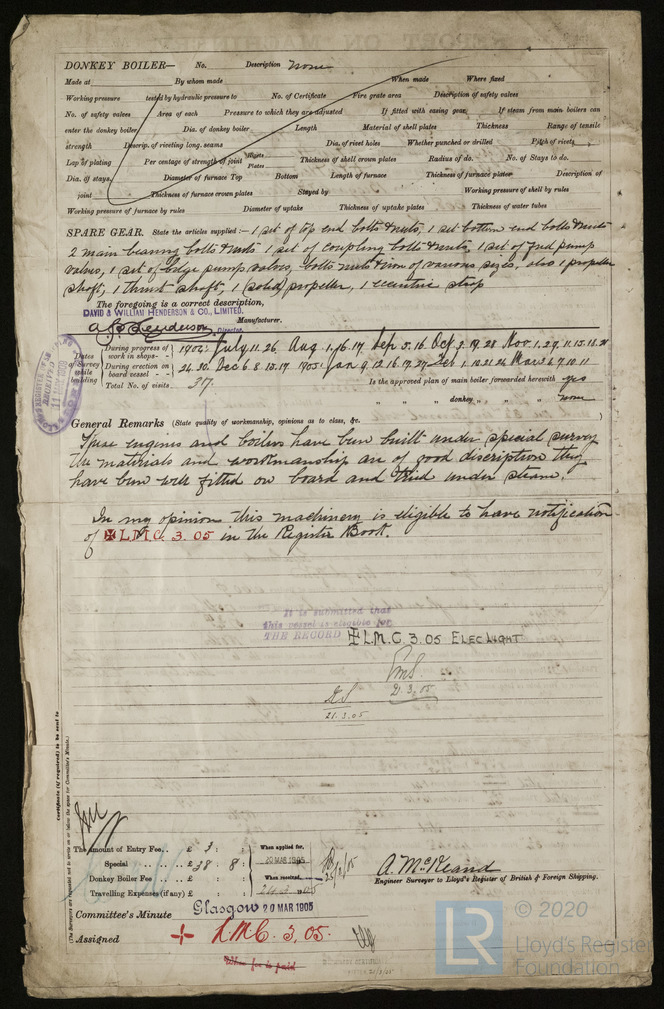 DONKEY BOILER— No. Description None
Made at By whom made When made Where fixed
Working pressure tested by hydraulic pressure to No. of Certificate Fire grate area Description of safety valves
No. of safety valves Area of each Pressure to which they are adjusted If fitted with easing gear If steam from main boilers can
enter the donkey boiler Dia. of donkey boiler Length Material of shell plates Thickness Range of tensile
strength Descrip. of riveting long. seams Dia. of rivet holes Whether punched or drilled Pitch of rivets
Lap of plating Per centage of strength of joint Rivets Plates Thickness of shell crown plates Radius of do. No. of Stays to do.
Dia. of stays. Diameter of furnace Top Bottom Length of furnace Thickness of furnace plates Description of
joint Thickness of furnace crown plates Stayed by Working pressure of shell by rules
Working pressure of furnace by rules Diameter of uptake Thickness of uptake plates Thickness of water tubes
SPARE GEAR. State the articles supplied:— 1 set of top end bolts & nuts, 1 set bottom end bolts & nuts
2 main bearing bolts & nuts 1 set of coupling bolts & nuts, 1 set of feed pump
valves, 1 set of bilge pump valves, bolts nuts & iron of various sizes, also 1 propeller
shaft, 1 thrust shaft, 1 (solid) propeller, 1 eccentric strap
The foregoing is a correct description,
DAVID & WILLIAM HENDERSON & CO., LIMITED.
Henderson Director. Manufacturer.
Dates of Survey while building
During progress of work in shops - - 1904: July 11. 26. Aug. 1. 16. 17. Sep. 5. 16. Oct. 7. 19. 28. Nov. 1. 29. 11. 15. 18. 21
During erection on board vessel - - - 24. 30. Dec 6. 8. 10. 17. 1905: Jan 9. 12. 16. 19. 27. Feb 1. 10. 21. 24. Mar 3. 6. 7. 10. 11
Total No. of visits 37. Is the approved plan of main boiler forwarded herewith yes
" " " donkey " " " none
General Remarks (State quality of workmanship, opinions as to class, &c.
These engines and boilers have been built under special survey
the materials and workmanship are of good discription they
have been well fitted on board and tried under steam.
In my opinion this machinery is eligible to have notification
of ✠ L.M.C. 3. 05 in the Register Book.
It is submitted that
this vessel is eligible for
THE RECORD ✠ L.M.C. 3.05 ELEC LIGHT
21.3.05
21.3.05
Certificate (if required) to be sent to
(The Surveyors are requested not to write on or below the space for Committee's Minute.)
The amount of Entry Fee.. £ 3 : : When applied for,
Special .. .. £ 38 . 8 : 20 MAR 1905
Donkey Boiler Fee .. .. £ : : When received,
Travelling Expenses (if any) £ : : 24.3.1905
A. McKeand
Engineer Surveyor to Lloyd's Register of British & Foreign Shipping.
Committee's Minute Glasgow 20 MAR 1905
Assigned + L.M.C. 3,05.
When fee is paid
LR © 2020
Lloyd's Register
Foundation